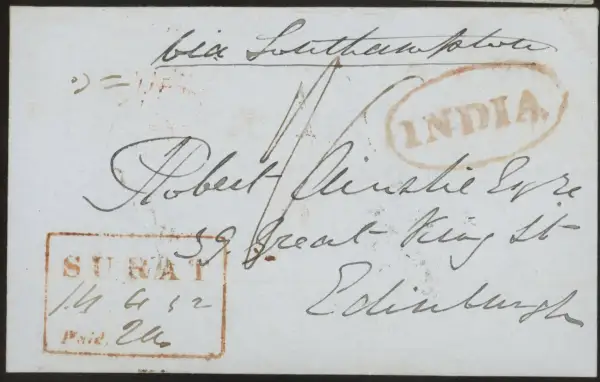 via Southampton
INDIA
Robert Ainslie Esqre
39 Great King St
Edinburgh
SURAT
Paid. 2a